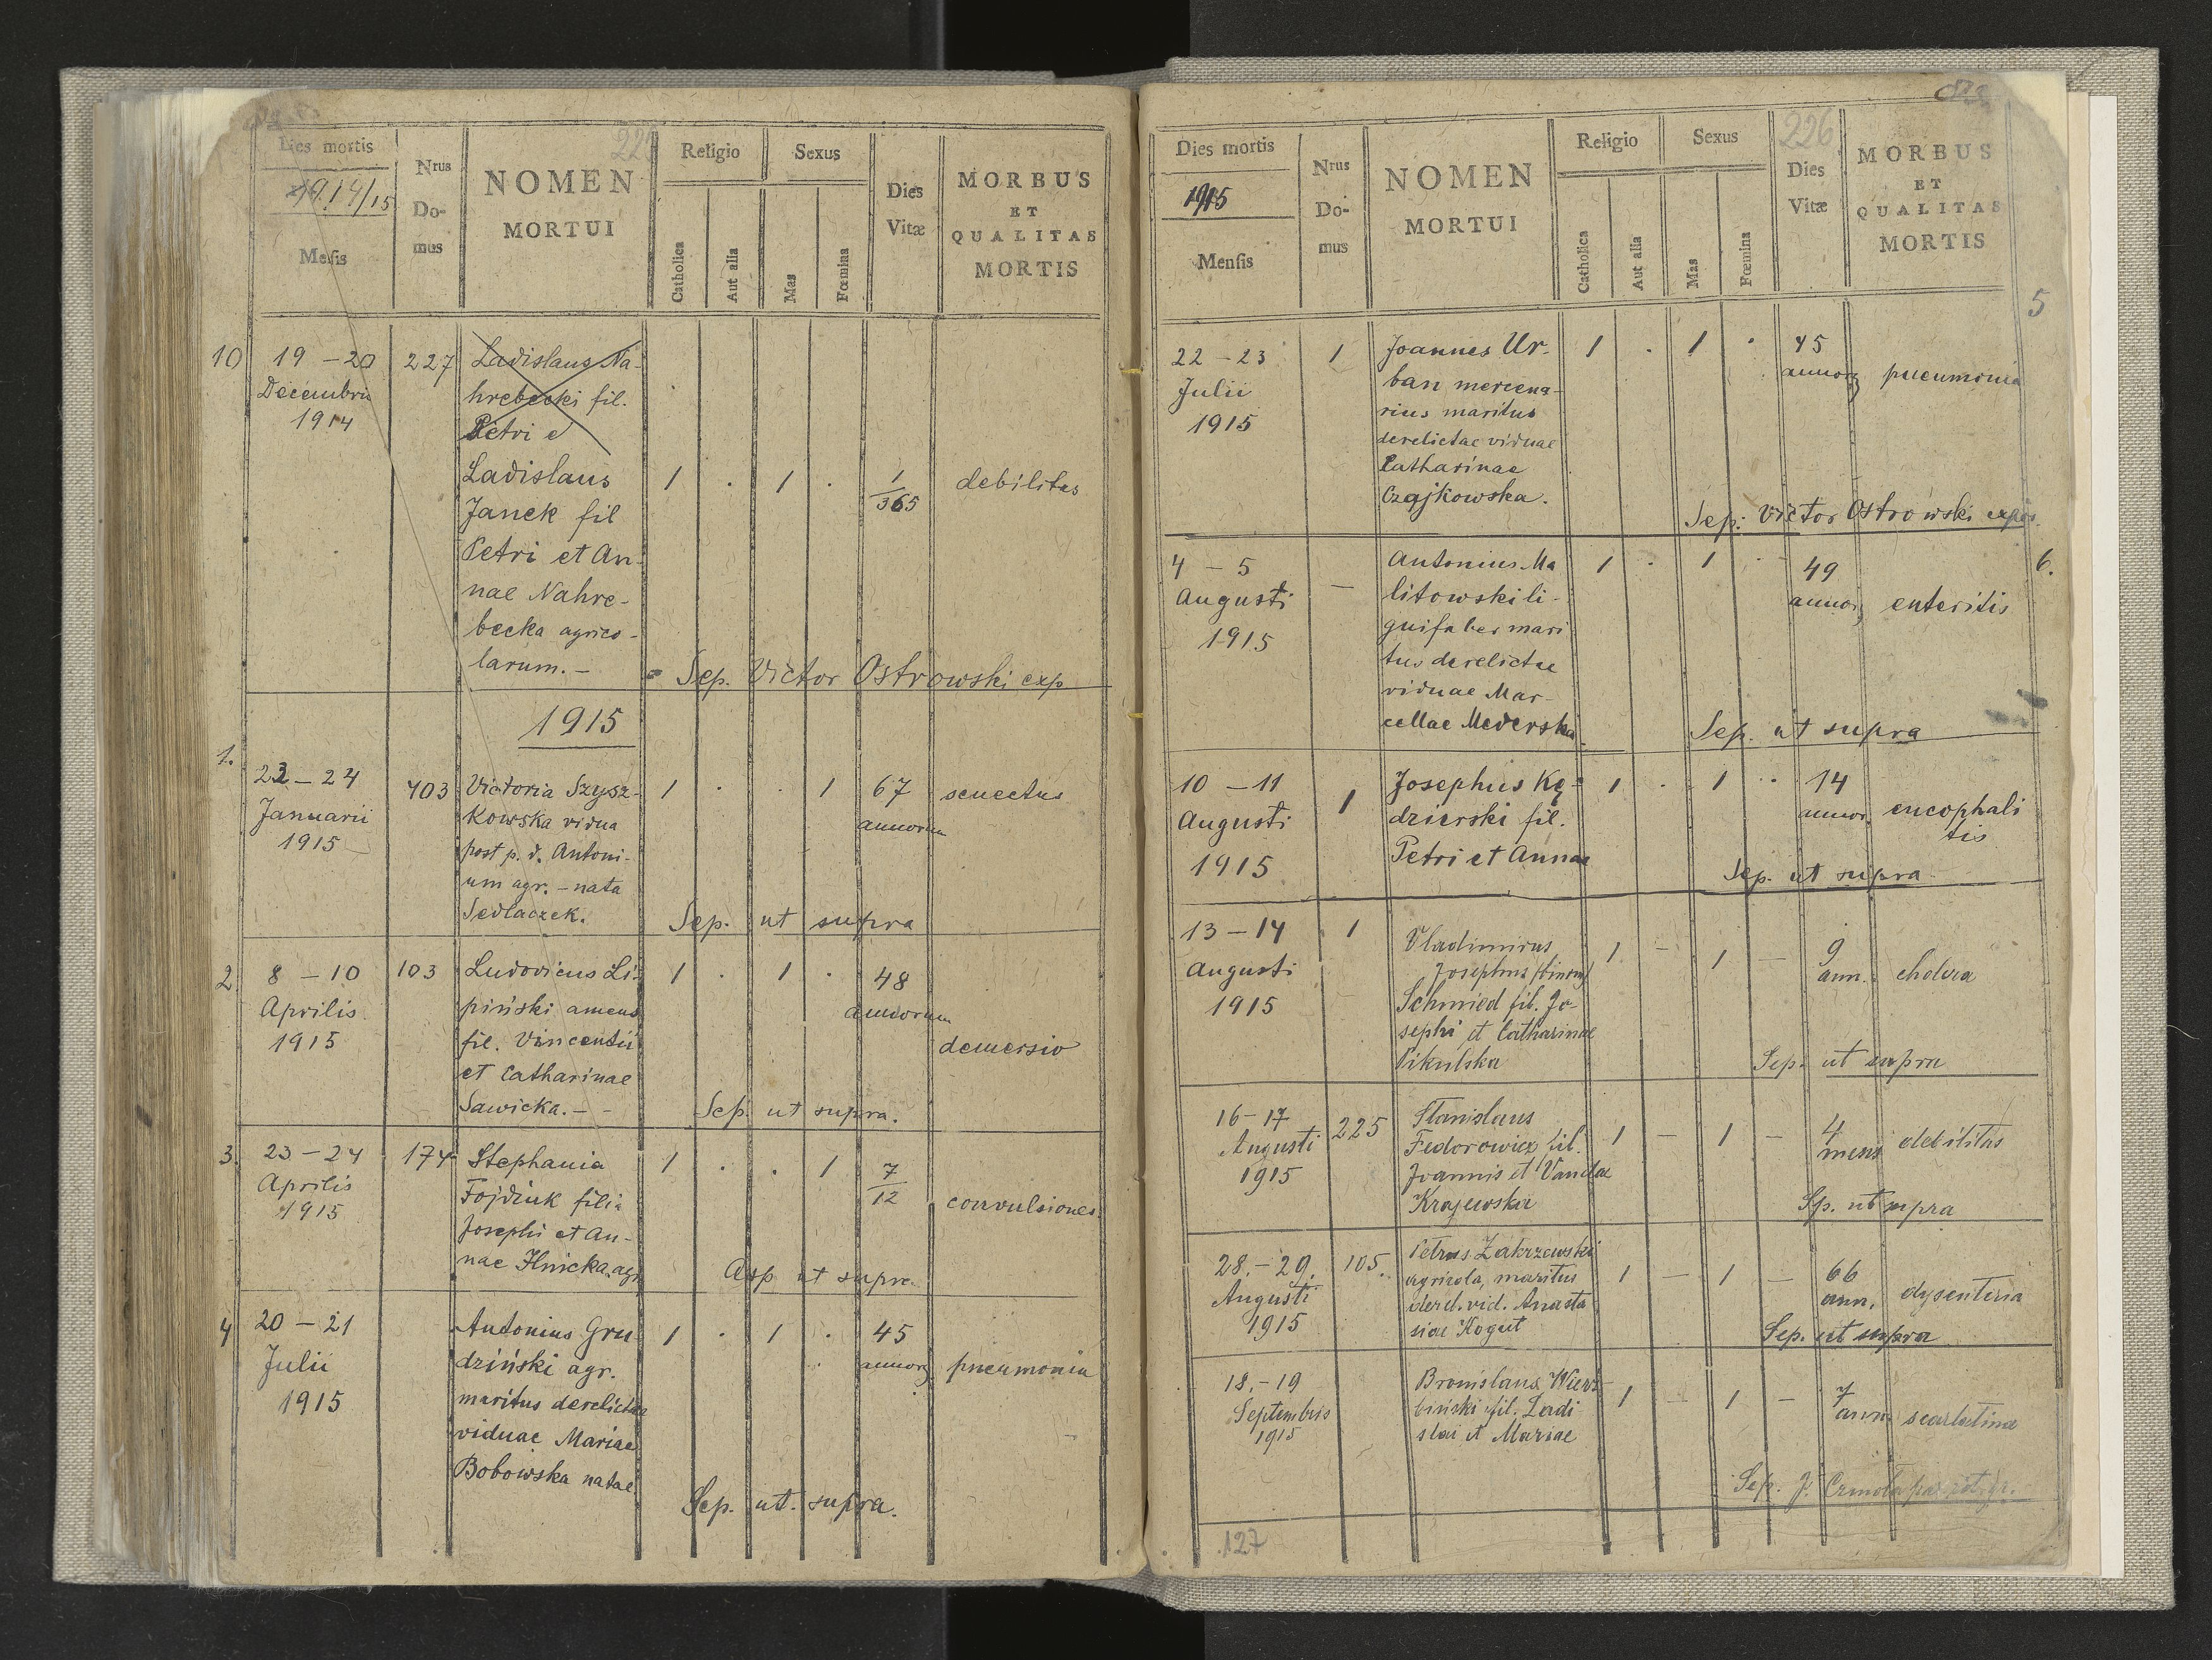 Dies mortis
1914/15
Mensis
Nrus
Do-
mus
NOMEN
MORTUI
Religio
Catholica
Aut alia
Sexus
Mas
Fœmina
Dies
Vitæ
MORBUS
ET
QUALITAS
MORTIS
10
19 - 20
Decembris
1914
227
Ladislaus Na-
hrebecki fil.
Petri e
Ladislaus
Janek fil
Petri et An-
nae Nahre-
becka agrico-
larum. -
1 . 1 .
1/365
debilitas
= Sep. Victor Ostrowski exp
1915
1.
23 - 24
Januarii
1915
403
Victoria Szysz-
kowska vidua
post p. d. Antoni-
um agr. - nata
Sedlaczek.
1 . . 1
67
annorum
senectus
Sep. ut supra
2.
8 - 10
Aprilis
1915
103
Ludovicus Li-
piński amens
fil. Vincentii
et Catharinae
Sawicka. - -
1 . 1 .
48
annorum
demersio
Sep. ut supra.
3.
23 - 24
Aprilis
1915
174
Stephania
Fojdiuk filia
Josephi et An-
nae Ilnicka agr
1 . . 1
7/12
convulsiones.
ut supra
4
20 - 21
Julii
1915
Antonius Gru
dziński agr.
maritus derelictae
viduae Mariae
Bobowska natae
1 . 1 .
45
annor
pneumonia
Sep. ut. supra.
226
Dies mortis
1915
Mensis
Nrus
Do-
mus
NOMEN
MORTUI
Religio
Catholica
Aut alia
Sexus
Mas
Fœmina
Dies
Vitæ
MORBUS
ET
QUALITAS
MORTIS
5
22 - 23
Julii
1915
1
Joannes Ur-
ban mercena-
rius maritus
derelictae viduae
Catharinae
Czajkowska.
1 . 1 .
45
annor
pneumonia
Sep: Victor Ostrowski expos.
6.
4 - 5
Augusti
1915
-
Antonius Ma
litowski li-
gnifaber mari
tus derelictae
viduae Mar-
cellae Mederska
1 . 1 .
49
annor
enteritis
Sep. ut supra
10 - 11
Augusti
1915
1
Josephus Kę-
dzierski fil.
Petri et Annae
1 . 1 .
14
annor
encephali
tis
Sep. ut supra
13 - 14
Augusti
1915
1
Vladimirus
Josephus (binom)
Schmied fil. Jo-
sephi et Catharinae
Pikulska
1 - 1 -
9
ann.
cholera
Sep. ut supra
16 - 17
Augusti
1915
225
Stanislaus
Fedorowicz fil.
Joannis et Vandae
Krajewska
1 - 1 -
4
mens
debilitas
Sp. ut supra
28. - 29.
Augusti
1915
105.
Petrus Zakrzewski
agricola, maritus
derel. vid. Anasta
siae Kogut
1 - 1 -
66
ann.
dysenteria
Sep. ut supra
18. - 19
Septembris
1915
Bronislaus Wierz-
biński fil. Ladi
slai et Mariae
1 - 1 -
7
ann
scarlatina
Sep. J.
127